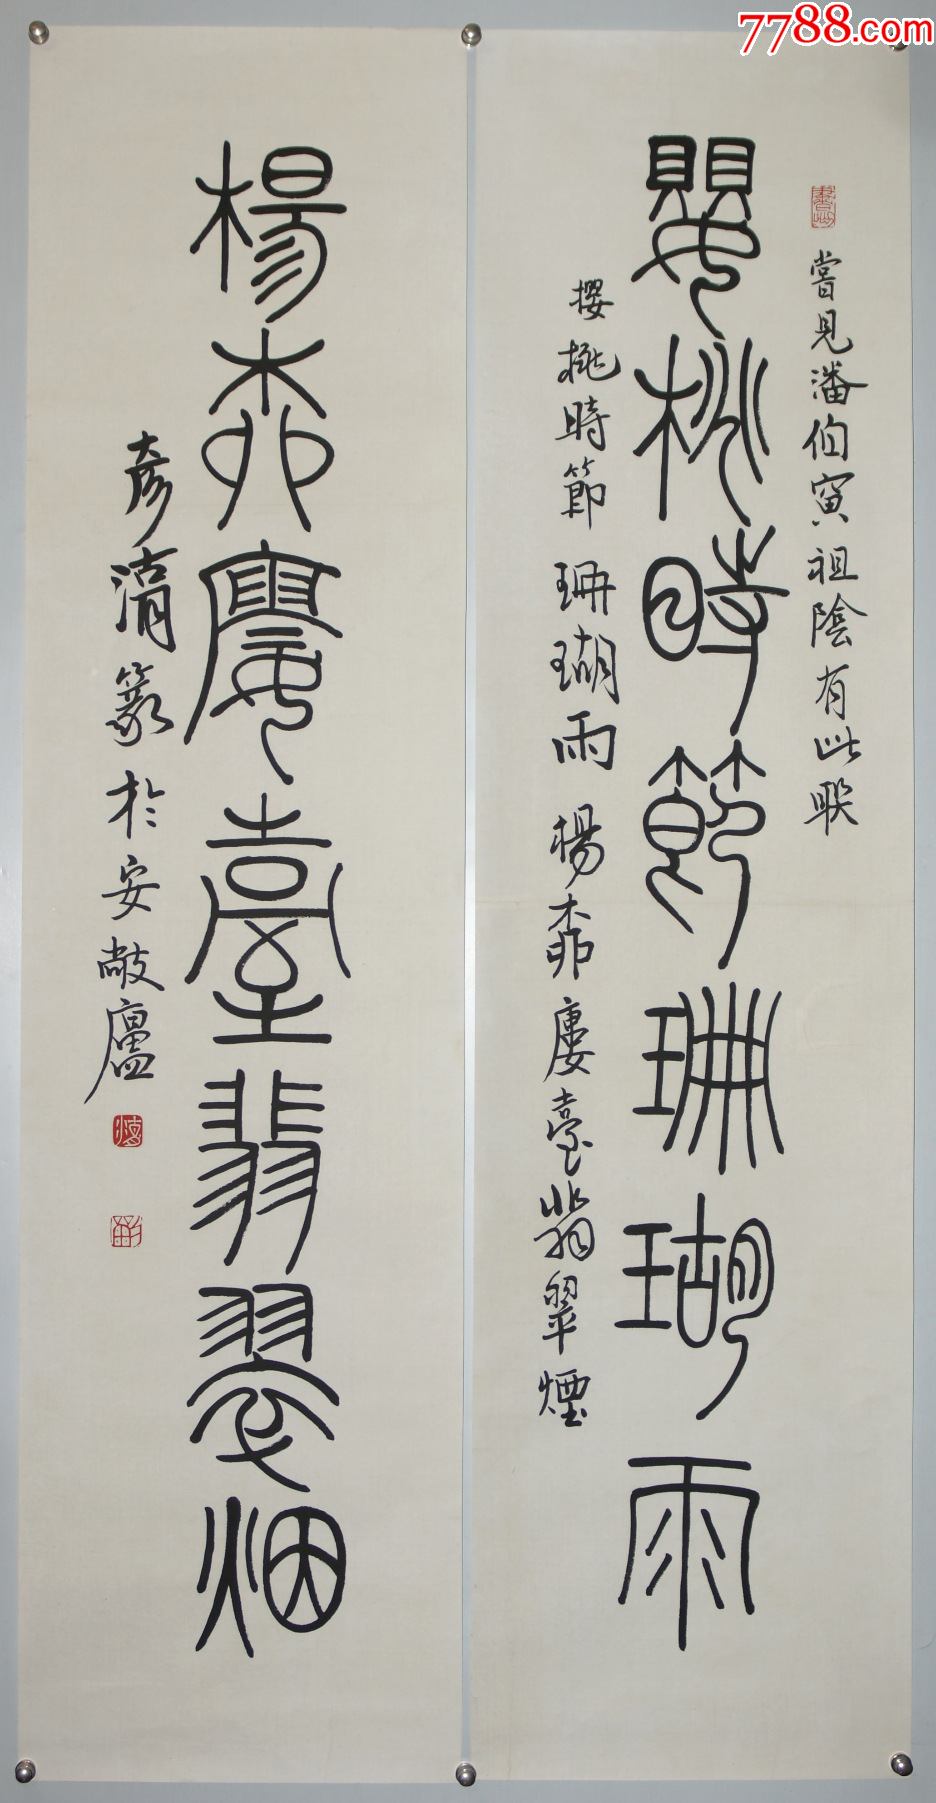 7788.com
嘗見潘伯寅祖陰有此联
嬰桃時節珊瑚雨
櫻桃時節珊瑚雨 楊桺廔臺翡翠煙
楊桺廔臺翡翠烟
彥清篆於安敞廬